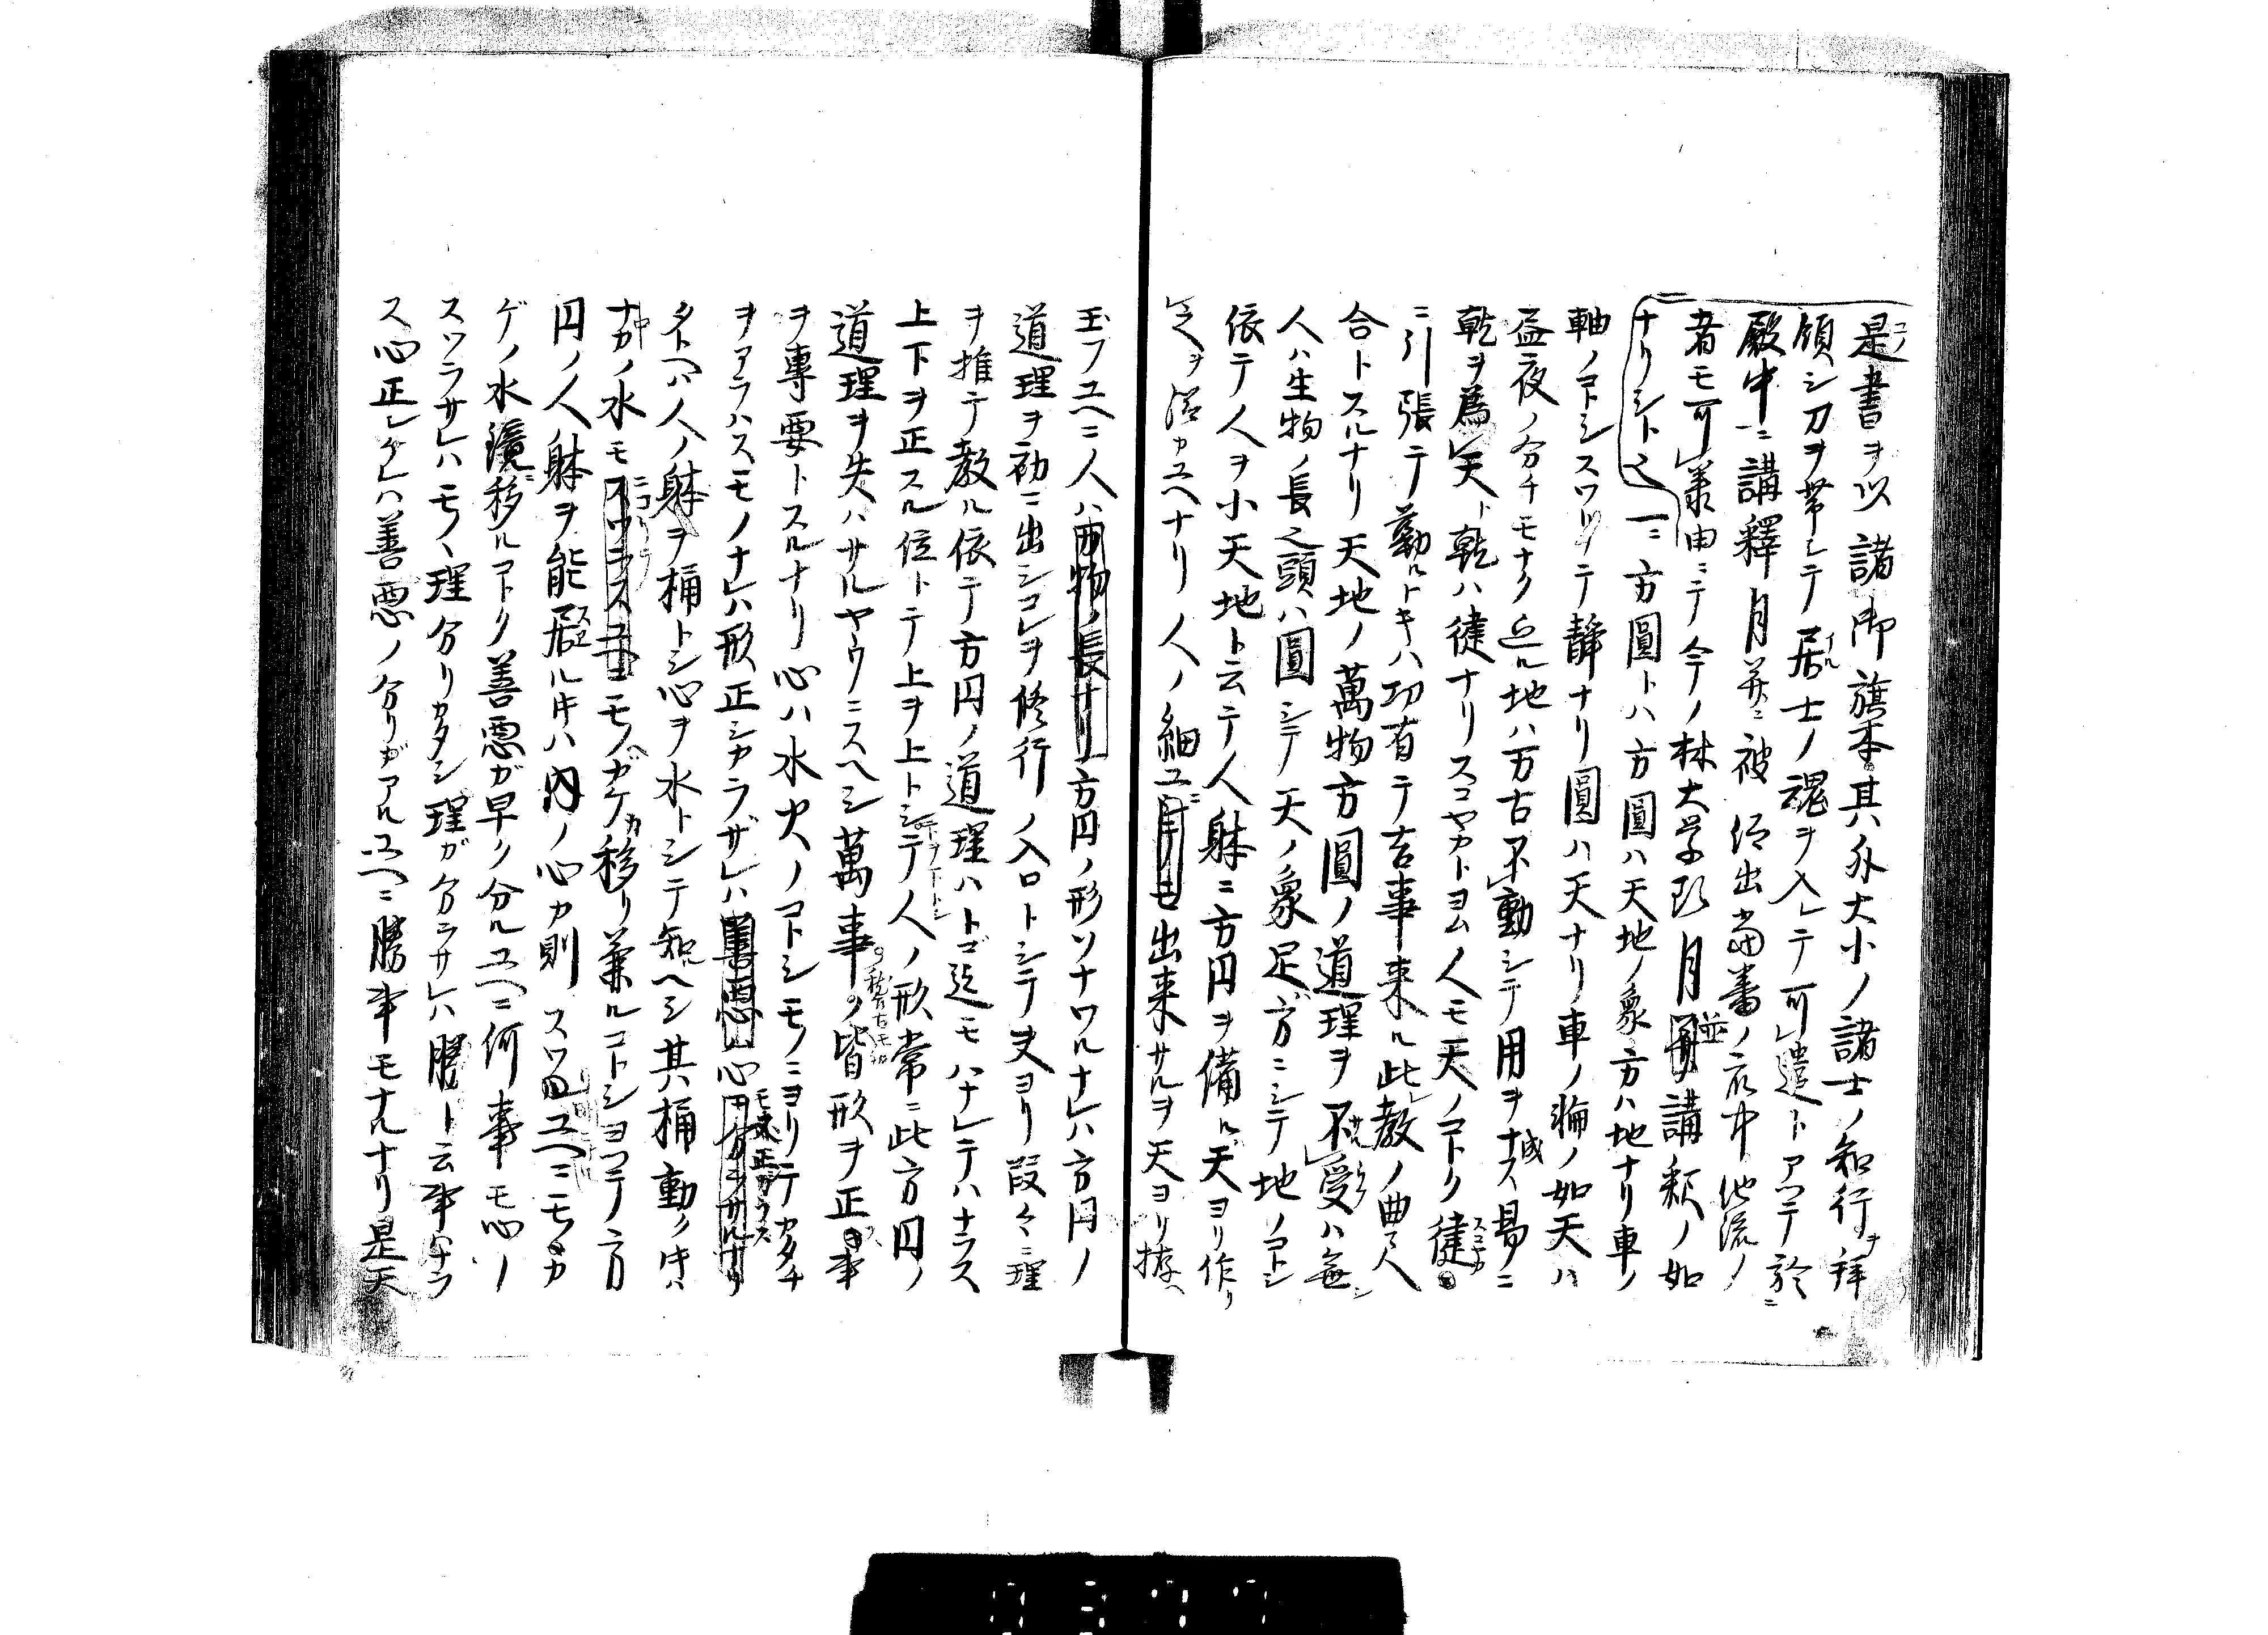 是書ヲ以諸御旗本其外大小ノ諸士ノ知行ヲ拝
領シ刀ヲ帯シテ居士ノ魂ヲ入レテ可遣トアツテ於ニ
殿中ニ講釋月並ニ被仰出当番ノ衣中他流ノ
者モ可兼由ニテ今ノ林大学頭月並講釈ノ如
ナリシト之一ニ方圓トハ方圓ハ天地ノ象方ハ地ナリ車ノ
軸ノコトシスワリテ静ナリ圓ハ天ナリ車ノ輪ノ如天ハ
昼夜ノ分チモナク廻ル地ハ万古不動シテ用ヲ成ス易ニ
乾ヲ為天ト乾ハ健ナリスコヤカトヨム人モ天ノコトク健
ニ引張テ勤ルトキハ功有テ吉事来ル此教ノ曲尺
合トスルナリ天地ノ萬物方圓ノ道理ヲ不受ハ無シ
人ハ生物ノ長之頭ハ圓シテ天ノ象足ガ方ニシテ地ノコトシ
依テ人ヲ小天地ト云テ人躰ニ方円ヲ備ル天ヨリ作リ
之ヲ浴カユヘナリ人ノ細工ニ出来サルヲ天ヨリ授ヘ
玉フユヘニ人ハ方円ノ形ソナワルナレハ方円ノ
道理ヲ初ニ出シコレヲ修行ノ入口トシテ夫ヨリ段々ニ理
ヲ推テ教ル依テ方円ノ道理ハトコ迄モハナレテハナラス
上下ヲ正スル位トテ上ヲ上トシ下ヲ下トシテ人ノ形常ニ此方円ノ
道理ヲ失ハサルヤウニスヘシ萬事ノ皆形ヲ正ス事
ヲ専要トスルナリ心ハ水火ノコトシモノニヨリテカタチ
ヲアラハスモノナレハ形正シカラザレハ心モ又正カラス
タトヘハ人ノ躰ヲ桶トシ心ヲ水トシテ知ヘシ其桶動ク时ハ
中ノ水モニコリテモノガゲカ移リ兼ルコトシヨツテ方
円ノ人躰ヲ能居ル时ハ内ノ心カ則スワルユヘニモノカ
ゲノ水鏡移ルコトク善悪ガ早ク分ルユヘニ何事モ心ノ
スワラサレハモノヽ理分リカタシ理ガ分ラサレハ勝ト云事ハナラ
ス心正シケレハ善悪ノ分リガアルユヘニ勝事モナルナリ是天